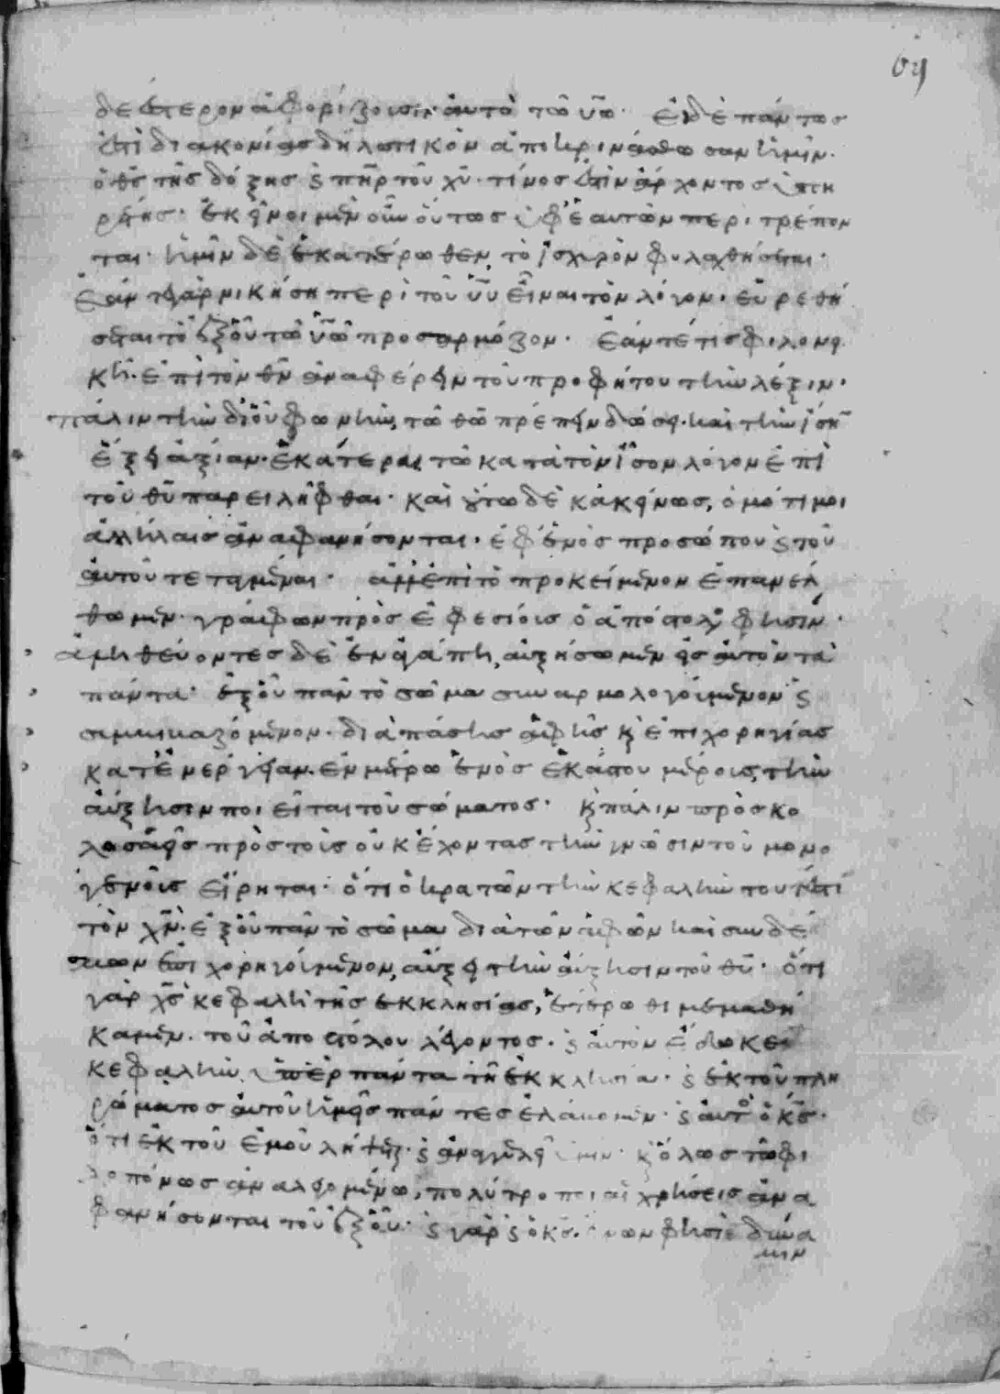 δεύτερον ἀφορίζουσιν αὐτὸ τῶ υἱῶ. εἰ δὲ πάντως
ἐστὶ διακονίας δηλωτικὸν ἀποκρινάσθωσαν ἡμῖν.
ὁ θς τῆς δόξης καὶ πηρ τοῦ χυ. τίνος ἐστὶν ἄρχοντος ὑπη
ρέτης. ἐκεῖνοι μὲν οὖν οὕτως ὑφ' ἑαυτῶν περιτρέπον
ται. ἡμῖν δὲ ἑκατέρωθεν τὸ ἰσχυρὸν φυλαχθήσεται.
ἐὰν γὰρ νικήση περὶ τοῦ υυ εἶναι τὸν λόγον. εὑρεθή
σεται τὸ ἐξοῦ τῶ υω προσαρμόζον. ἐάν τέ τις φιλονει
κῆ. ἐπὶ τὸν θν ἀναφέρειν τοῦ προφήτου τὴν λέξιν.
πάλιν τὴν δι οὗ φωνὴν, τῶ θω πρέπειν δώσει. καὶ τὴν ἴσην
ἕξει ἀξίαν. ἑκατέρα τῶ κατὰ τὸν ἴσον λόγον ἐπὶ
τοῦ θυ παρειλῆφθαι. καὶ οὕτω δὲ κἀκείνως, ὁμότιμοι
ἀλλήλαις ἀναφανήσονται. ἐφ' ἑνὸς προσώπου καὶ τοῦ
αὐτοῦ τεταγμέναι. ἀλλ' ἐπὶ τὸ προκείμενον ἐπανέλ
θωμεν. γράφων πρὸς ἐφεσίοις ὁ ἀπόστολος φησίν.
ἀληθεύοντες δὲ ἐν ἀγάπη, αὐξήσωμεν εἰς αὐτὸν τὰ
πάντα. ἐξοῦ πᾶν τὸ σῶμα συναρμολογούμενον καὶ
συμβιβαζόμενον. διὰ πάσης ἁφῆς καὶ ἐπιχορηγίας
κατ' ἐνέργειαν. ἐν μέτρω ἑνὸς ἑκάστου μέρους, τὴν
αὔξησιν ποιεῖται τοῦ σώματος. καὶ πάλιν πρὸς κο
λοσσαεῖς πρὸς τοὺς οὐκ ἔχοντας τὴν γνῶσιν τοῦ μονο
γενοῦς εἴρηται. ὅτι ὁ κρατῶν τὴν κεφαλὴν τουτέστι
τὸν χν. ἐξοῦ πᾶν τὸ σῶμα διὰ τῶν ἁφῶν καὶ συνδέ
σμων ἐπιχορηγούμενον, αὔξει τὴν αὔξησιν τοῦ θυ. ὅτι
γὰρ χς κεφαλὴ τῆς ἐκκλησίας, ἑτέρωθι μεμαθή
καμεν. τοῦ ἀποστόλου λέγοντος. καὶ αὐτὸν ἔδωκεν
κεφαλὴν ὑπὲρ πάντα τῆ ἐκκλησία. καὶ ἐκ τοῦ πλη
ρώματος αὐτοῦ ἡμεῖς πάντες ἐλάβομεν. καὶ αὐτὸς ὁ κς.
ὅτι ἐκ τοῦ ἐμοῦ λήψεται. καὶ ἀναγγελεῖ ὑμῖν. καὶ ὅλως τῶ φι
λοπόνως ἀναλεγομένω, πολύτροποι αἱ χρήσεις ἀνα
φανήσονται τοῦ ἐξοῦ. καὶ γὰρ καὶ ὁ κς. ἔγνων φησὶ δύνα
μιν